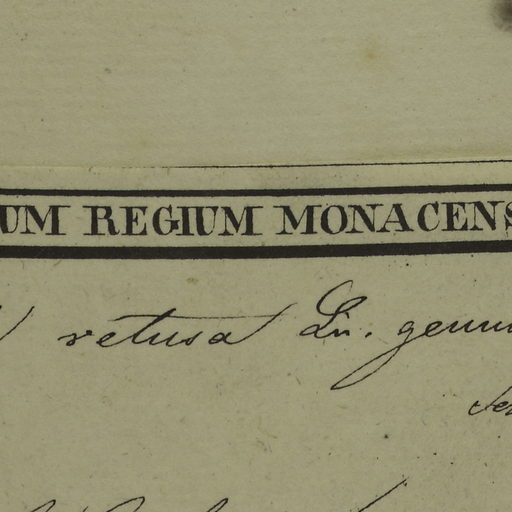 UM REGIUM MONACENS
retusa Lin. genu